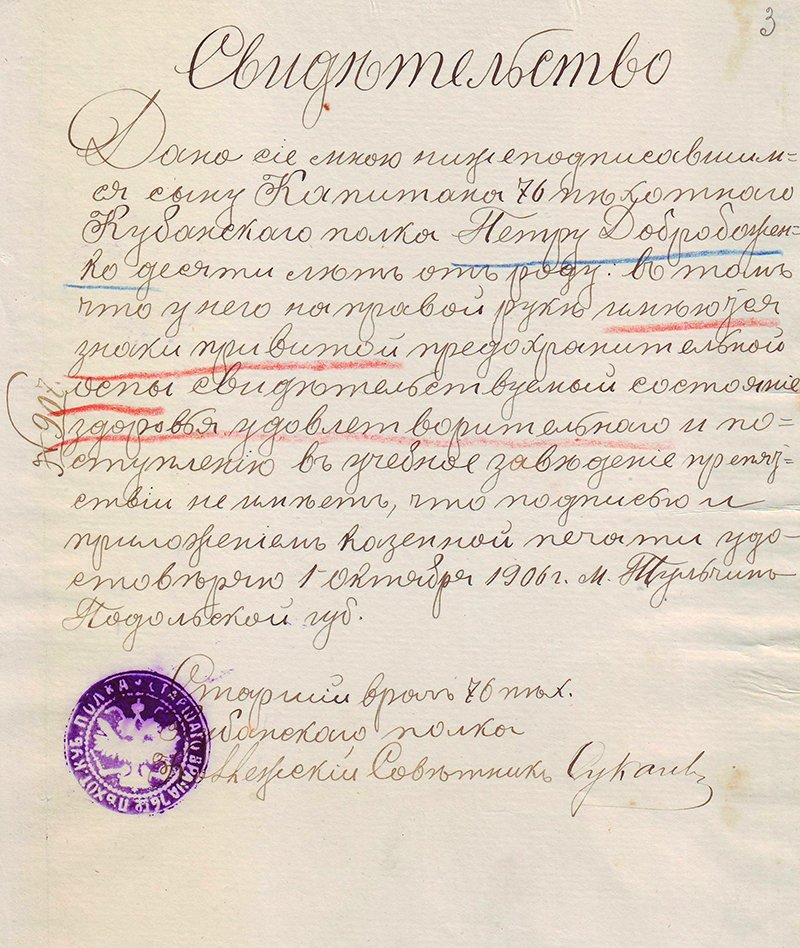 3
Свидѣтельство
Дано сіе мною нижеподписавшим=
ся сыну Капитана 76 пѣхотнаго
Кубанскаго полка Петру Добробожен=
ко десяти лѣтъ отъ роду. въ томъ
что у него на правой рукѣ имѣются
знаки привитой предохранительной
оспы свидѣтельствуемый состояніе
здоровья удовлетворительнаго и по=
ступленію въ учебное завѣденіе препят=
ствій не имѣетъ, что подписью и
приложеніемъ казенной печати удо=
стовѣряю 1 октября 1906 г. м. Тульчинъ
Подольской губ.
№ 907
Старшій врачъ 76 пѣх.
Кубанскаго полка
Совѣтникъ
СТАРШАГО ВРАЧА 76го ПѢХОТ. КУБ. ПОЛКА